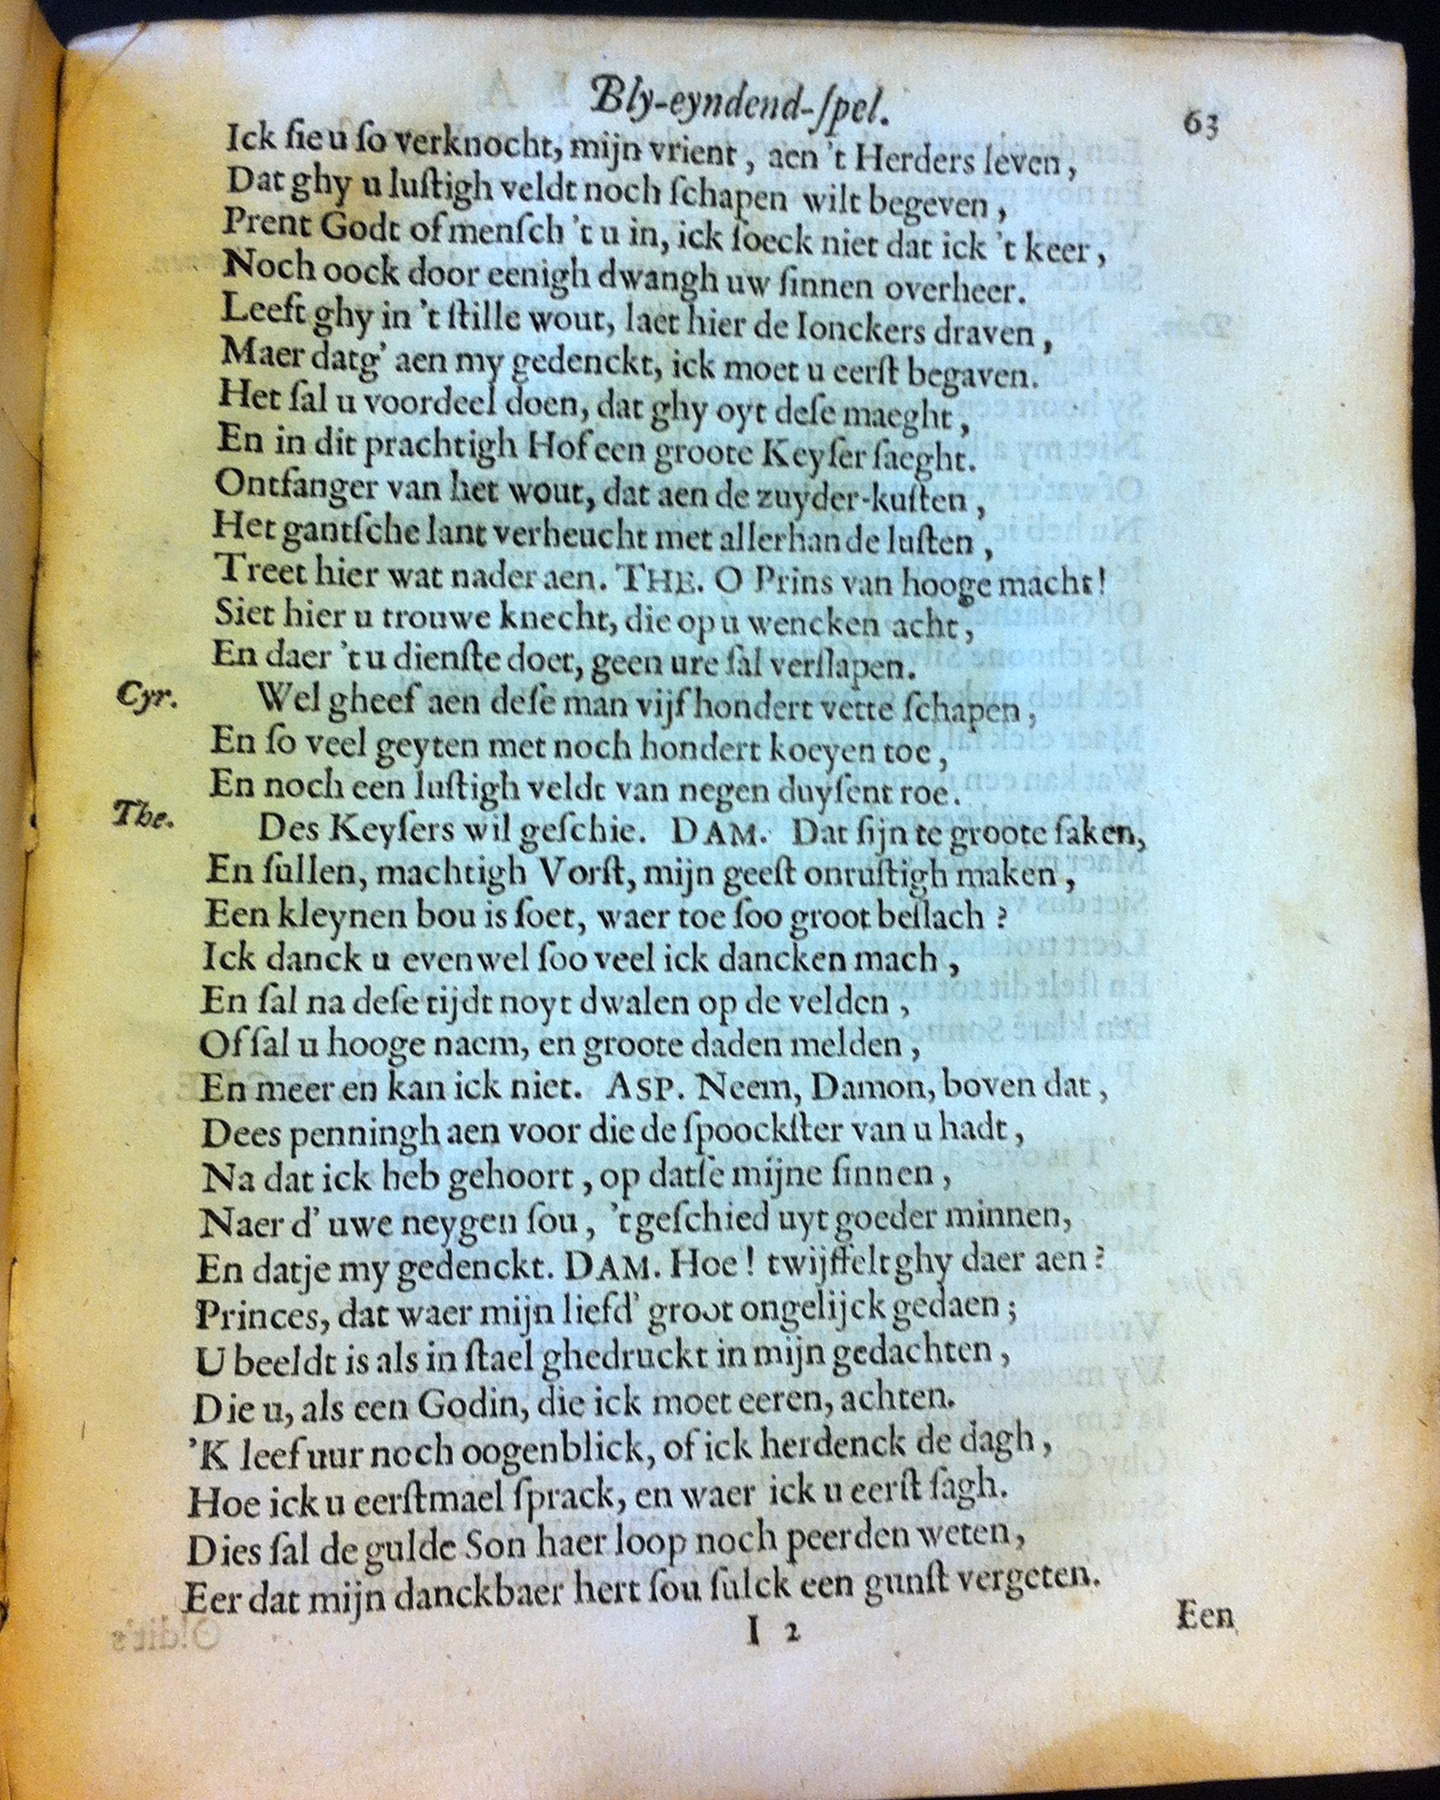 Bly-eyndend-ſpel. 63
Ick ſie u ſo verknocht, mijn vrient, aen 't Herders leven,
Dat ghy u luſtigh veldt noch ſchapen wilt begeven,
Prent Godt of menſch 't u in, ick ſoeck niet dat ick 't keer,
Noch oock door eenigh dwangh uw ſinnen overheer.
Leeft ghy in 't ſtille wout, laet hier de Ionckers draven,
Maer datg' aen my gedenckt, ick moet u eerſt begaven.
Het ſal u voordeel doen, dat ghy oyt deſe maeght,
En in dit prachtigh Hof een groote Keyſer ſaeght.
Ontfanger van het wout, dat aen de zuyder-kuſten,
Het gantſche lant verheucht met allerhande luſten,
Treet hier wat nader aen. THE. O Prins van hooge macht!
Siet hier u trouwe knecht, die op u wencken acht,
En daer 't u dienſte doet, geen ure ſal verſlapen.
Cyr. Wel gheef aen deſe man vijf hondert vette ſchapen,
En ſo veel geyten met noch hondert koeyen toe,
En noch een luſtigh veldt van negen duyſent roe.
The. Des Keyſers wil geſchie. DAM. Dat ſijn te groote ſaken,
En ſullen, machtigh Vorſt, mijn geeſt onruſtigh maken,
Een kleynen bou is ſoet, waer toe ſoo groot beſlach?
Ick danck u evenwel ſoo veel ick dancken mach,
En ſal na deſe tijdt noyt dwalen op de velden,
Of ſal u hooge naem, en groote daden melden,
En meer en kan ick niet. ASP. Neem, Damon, boven dat,
Dees penningh aen voor die de ſpoockſter van u hadt,
Na dat ick heb gehoort, op datſe mijne ſinnen,
Naer d' uwe neygen ſou, 't geſchied uyt goeder minnen,
En datje my gedenckt. DAM. Hoe! twijffelt ghy daer aen?
Princes, dat waer mijn liefd' groot ongelijck gedaen;
U beeldt is als in ſtael ghedruckt in mijn gedachten,
Die u, als een Godin, die ick moet eeren, achten.
'K leef uur noch oogenblick, of ick herdenck de dagh,
Hoe ick u eerſtmael ſprack, en waer ick u eerſt ſagh.
Dies ſal de gulde Son haer loop noch peerden weten,
Eer dat mijn danckbaer hert ſou ſulck een gunſt vergeten.
I 2 Een